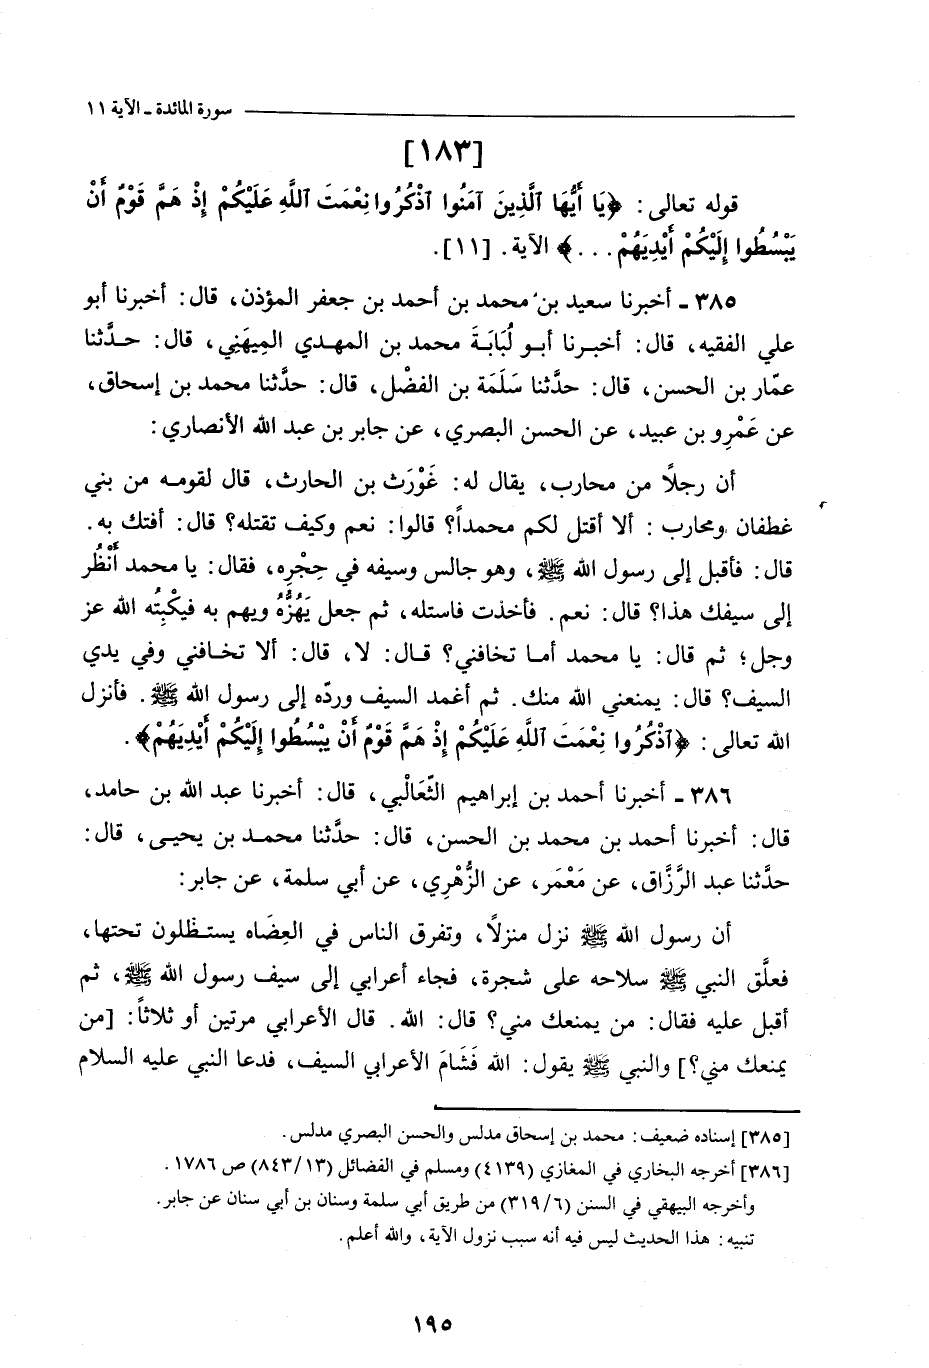 سورة المائدة ـ الآية ١١
[١٨٣]
قوله تعالى: ﴿يَا أَيُّهَا ٱلَّذِينَ آمَنُوا ٱذْكُرُوا نِعْمَتَ ٱللَّهِ عَلَيْكُمْ إِذْ هَمَّ قَوْمٌ أَنْ
يَبْسُطُوا إِلَيْكُمْ أَيْدِيَهُمْ...﴾ الآية. [١١].
٣٨٥ ـ أخبرنا سعيد بن محمد بن أحمد بن جعفر المؤذن، قال: أخبرنا أبو
علي الفقيه، قال: أخبرنا أبو لُبَابَةَ محمد بن المهدي المِيهَنِي، قال: حدَّثنا
عمّار بن الحسن، قال: حدَّثنا سَلَمَة بن الفضْل، قال: حدَّثنا محمد بن إسحاق،
عن عَمْرِو بن عبيد، عن الحسن البصري، عن جابر بن عبد الله الأنصاري:
أن رجلاً من محارب، يقال له: غَوْرَث بن الحارث، قال لقومه من بني
غطفان ومحارب: ألا أقتل لكم محمداً؟ قالوا: نعم وكيف تقتله؟ قال: أفتك به.
قال: فأقبل إلى رسول الله ﷺ، وهو جالس وسيفه في حِجْرِه، فقال: يا محمد أَنْظُر
إلى سيفك هذا؟ قال: نعم. فأخذت فاستله، ثم جعل يَهُزُّهُ ويهم به فيكْبِتُه الله عز
وجل؛ ثم قال: يا محمد أما تخافني؟ قال: لا، قال: ألا تخافني وفي يدي
السيف؟ قال: يمنعني الله منك. ثم أغمد السيف وردّه إلى رسول الله ﷺ. فأنزل
الله تعالى: ﴿ٱذْكُرُوا نِعْمَتَ ٱللَّهِ عَلَيْكُمْ إِذْ هَمَّ قَوْمٌ أَنْ يَبْسُطُوا إِلَيْكُمْ أَيْدِيَهُمْ﴾.
٣٨٦ ـ أخبرنا أحمد بن إبراهيم الثّعَالْبي، قال: أخبرنا عبد الله بن حامد،
قال: أخبرنا أحمد بن محمد بن الحسن، قال: حدَّثنا محمد بن يحيى، قال:
حدَّثنا عبد الرَّزَّاق، عن مَعْمَر، عن الزُّهْرِي، عن أبي سلمة، عن جابر:
أن رسول الله ﷺ نزل منزلًا، وتفرق الناس في العِضَاه يستظلون تحتها،
فعلَّق النبي ﷺ سلاحه على شجرة، فجاء أعرابي إلى سيف رسول الله ﷺ، ثم
أقبل عليه فقال: من يمنعك مني؟ قال: الله. قال الأعرابي مرتين أو ثلاثاً: [من
يمنعك مني؟] والنبي ﷺ يقول: الله فَشَامَ الأعرابي السيف، فدعا النبي عليه السلام
[٣٨٥] إسناده ضعيف: محمد بن إسحاق مدلس والحسن البصري مدلس.
[٣٨٦] أخرجه البخاري في المغازي (٤١٣٩) ومسلم في الفضائل (٨٤٣/١٣) ص ١٧٨٦.
وأخرجه البيهقي في السنن (٣١٩/٦) من طريق أبي سلمة وسنان بن أبي سنان عن جابر.
تنبيه: هذا الحديث ليس فيه أنه سبب نزول الآية، والله أعلم.
١٩٥